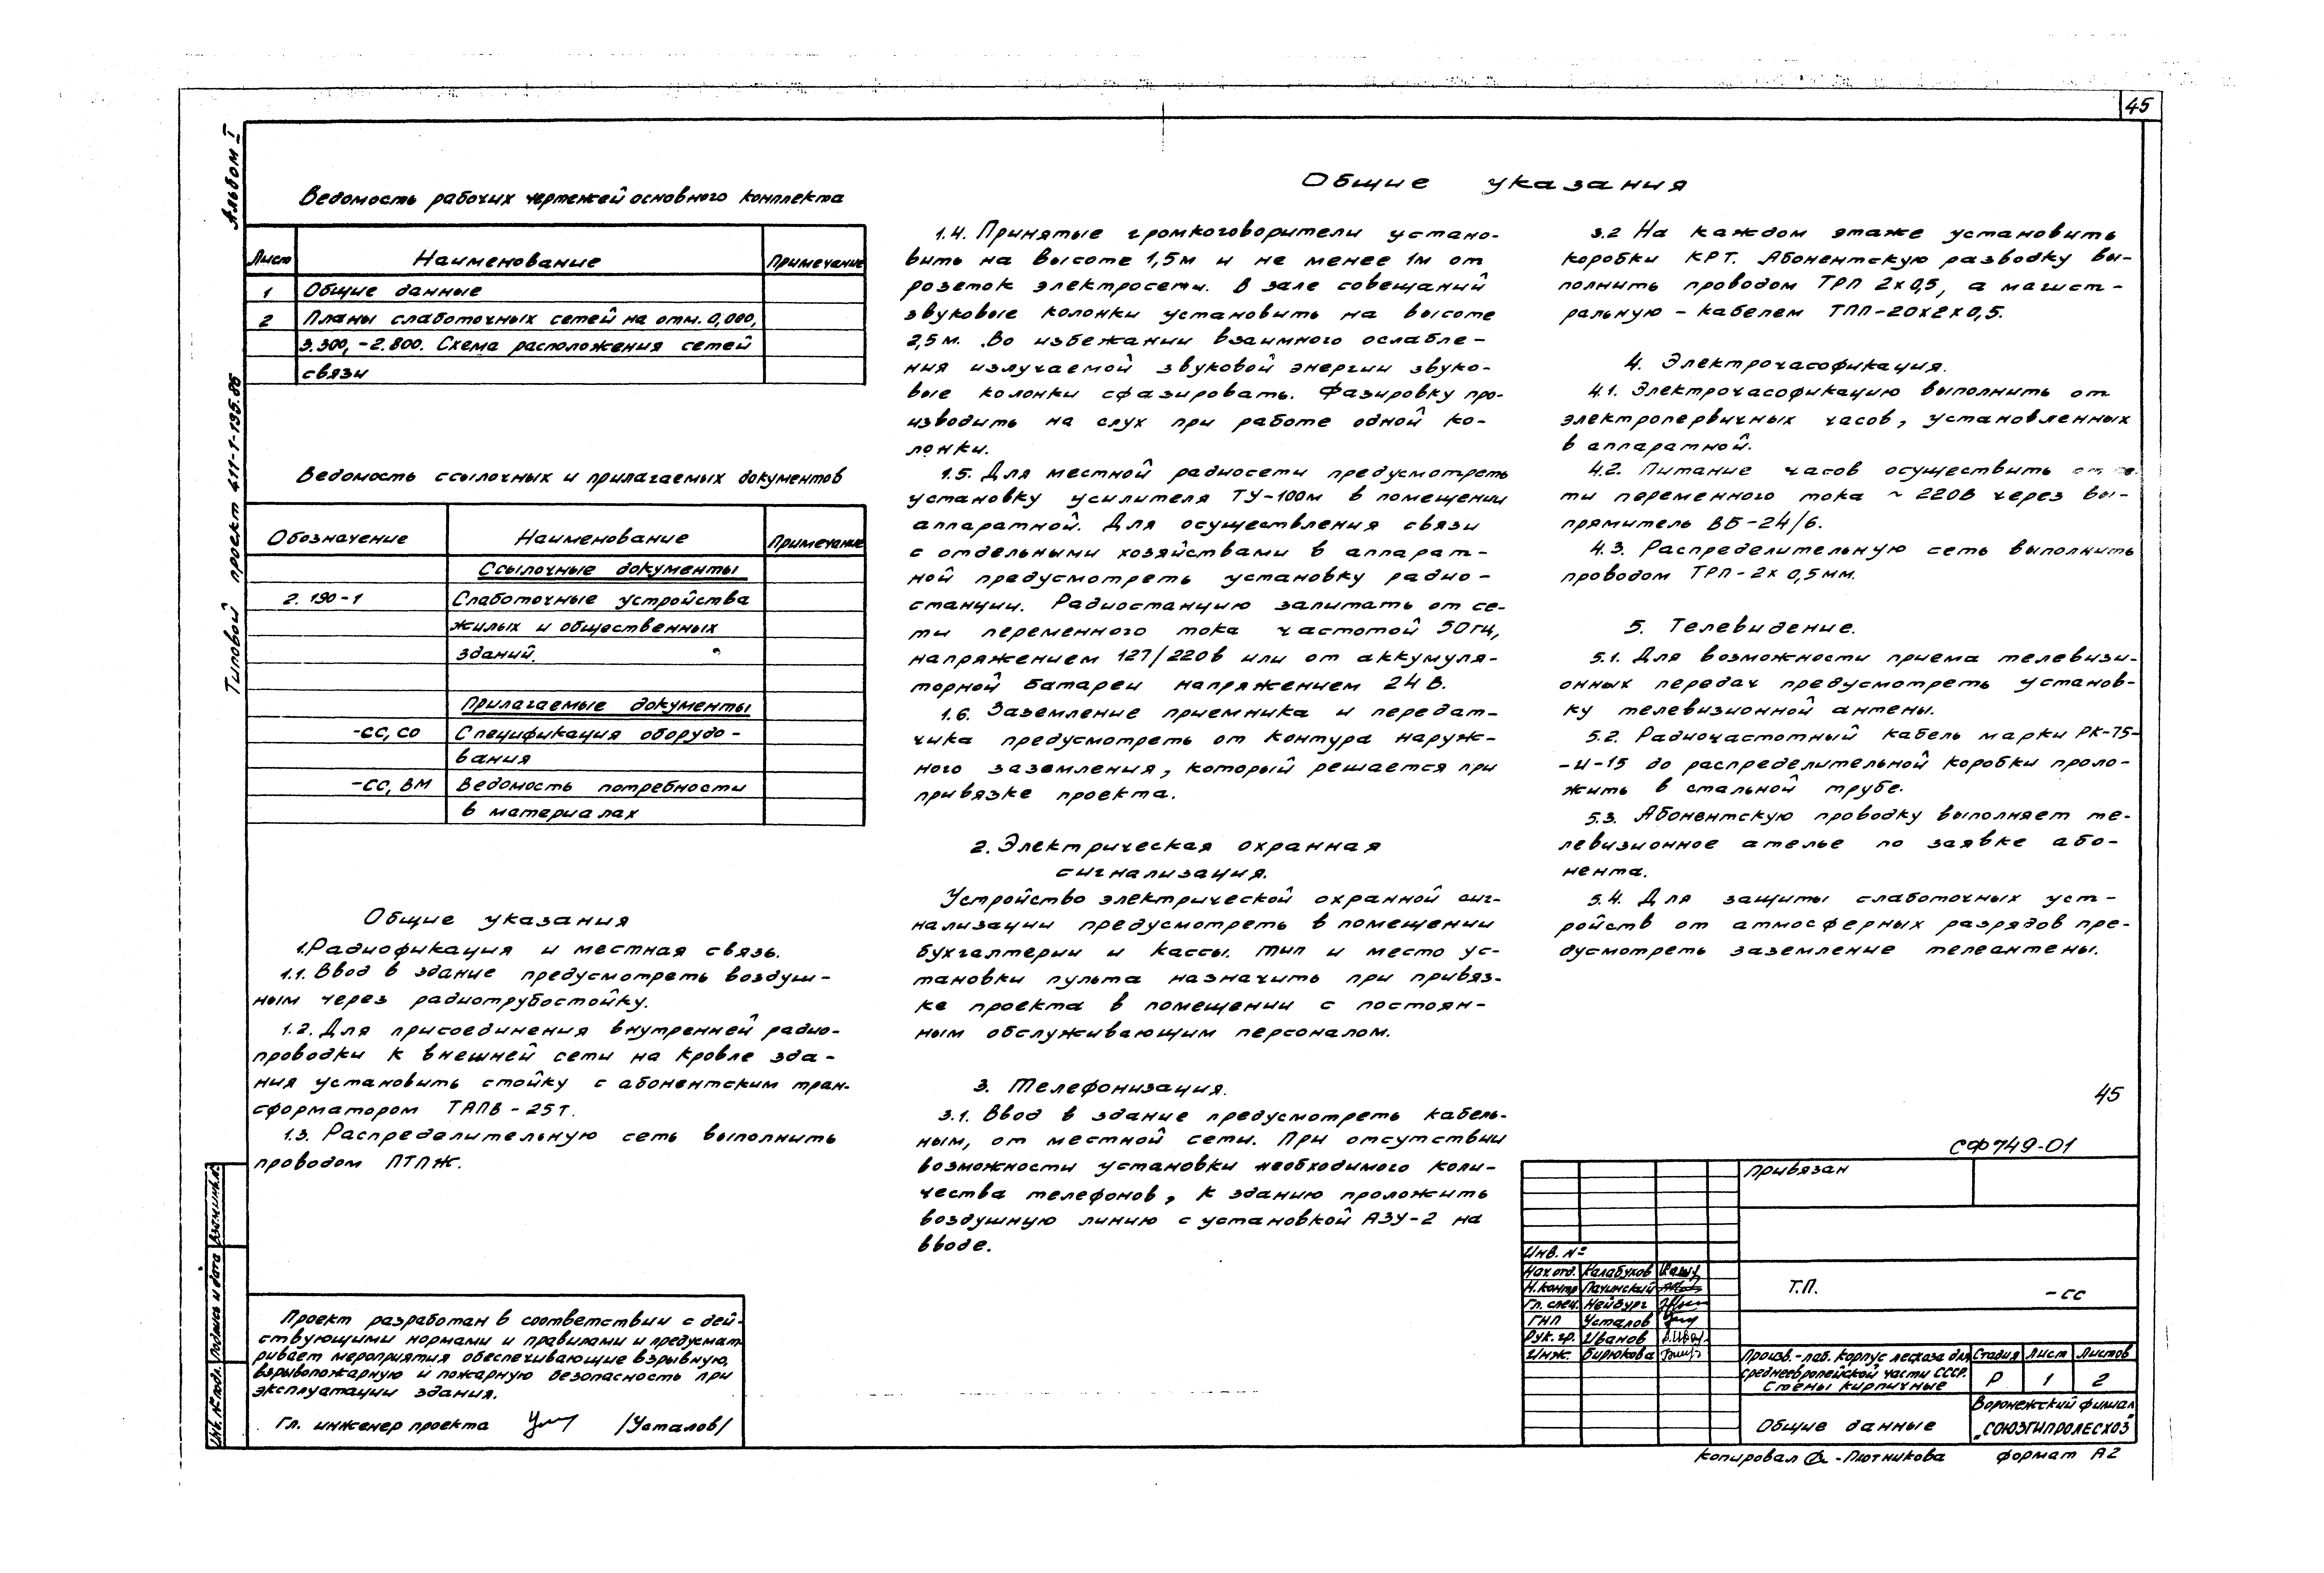 45
Альбом I
Типовой проект 411-1-135.86
Ведомость рабочих чертежей основного комплекта
Лист Наименование Примечание
1 Общие данные
2 Планы слаботочных сетей на отм. 0,000,
3.300, -2.800. Схема расположения сетей
связи
Ведомость ссылочных и прилагаемых документов
Обозначение Наименование Примечание
Ссылочные документы
2.190-1 Слаботочные устройства
жилых и общественных
зданий.
Прилагаемые документы
-СС, СО Спецификация оборудо-
вания
-СС, ВМ Ведомость потребности
в материалах
Общие указания
1. Радиофикация и местная связь.
1.1. Ввод в здание предусмотреть воздуш-
ным через радиотрубостойку.
1.2. Для присоединения внутренней радио-
проводки к внешней сети на кровле зда-
ния установить стойку с абонентским тран-
сформатором ТАПВ-25Т.
1.3. Распределительную сеть выполнить
проводом ПТПЖ.
Проект разработан в соответствии с дей-
ствующими нормами и правилами и предусмат
ривает мероприятия обеспечивающие взрывную,
взрывопожарную и пожарную безопасность при
эксплуатации здания.
Гл. инженер проекта /Усталов/
Общие указания
1.4. Принятые громкоговорители устано-
вить на высоте 1,5м и не менее 1м от
розеток электросети. В зале совещаний
звуковые колонки установить на высоте
2,5м. Во избежании взаимного ослабле-
ния излучаемой звуковой энергии звуко-
вые колонки сфазировать. Фазировку про-
изводить на слух при работе одной ко-
лонки.
1.5. Для местной радиосети предусмотреть
установку усилителя ТУ-100м в помещении
аппаратной. Для осуществления связи
с отдельными хозяйствами в аппарат-
ной предусмотреть установку радио-
станции. Радиостанцию запитать от се-
ти переменного тока частотой 50гц,
напряжением 127/220в или от аккумуля-
торной батареи напряжением 24 в.
1.6. Заземление приемника и передат-
чика предусмотреть от контура наруж-
ного заземления, который решается при
привязке проекта.
2. Электрическая охранная
сигнализация.
Устройство электрической охранной сиг-
нализации предусмотреть в помещении
бухгалтерии и кассы. Тип и место ус-
тановки пульта назначить при привяз-
ке проекта в помещении с постоян-
ным обслуживающим персоналом.
3. Телефонизация.
3.1. Ввод в здание предусмотреть кабель-
ным, от местной сети. При отсутствии
возможности установки необходимого коли-
чества телефонов, к зданию проложить
воздушную линию с установкой АЗУ-2 на
вводе.
3.2 На каждом этаже установить
коробки КРТ. Абонентскую разводку вы-
полнить проводом ТРП 2х0,5, а магист-
ральную - кабелем ТПП-20х2х0,5.
4. Электрочасофикация.
4.1. Электрочасофикацию выполнить от
электропервичных часов, установленных
в аппаратной.
4.2. Питание часов осуществить от се
ти переменного тока ~ 220в через вы-
прямитель ВБ-24/6.
4.3. Распределительную сеть выполнить
проводом ТРП-2х 0,5мм.
5. Телевидение.
5.1. Для возможности приема телевизи-
онных передач предусмотреть установ-
ку телевизионной антены.
5.2. Радиочастотный кабель марки РК-75-
-4-15 до распределительной коробки проло-
жить в стальной трубе.
5.3. Абонентскую проводку выполняет те-
левизионное ателье по заявке або-
нента.
5.4. Для защиты слаботочных уст-
ройств от атмосферных разрядов пре-
дусмотреть заземление телеантены.
45
СФ749-01
Привязан
Инв. №
Нач отд. Калабухов
Н.контр Пачинский
Гл. спец. Нейбург
ГИП Усталов
Рук. гр. Иванов
Инж. Бирюкова
Т.П. -СС
Произв.-лаб. корпус лесхоза для
среднеевропейской части СССР.
Стены кирпичные
Стадия Лист Листов
Р 1 2
Общие данные
Воронежский филиал
„СОЮЗГИПРОЛЕСХОЗ"
Копировал -Плотникова формат А2
Инв. № подл. Подпись и дата Взам.инв.№